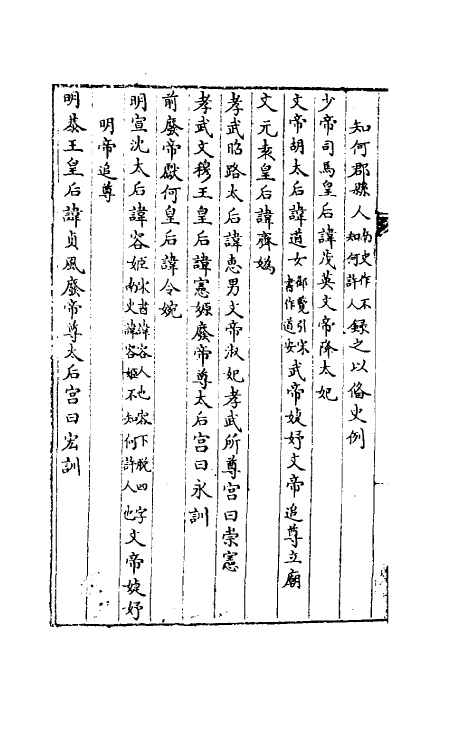 知何郡縣人南史作不知何許人錄之以俻史例
少帝司馬皇后諱茂英文帝降太妃
文帝胡太后諱道女御覽引宋書作道安武帝婕妤文帝追尊立廟
文元袁皇后諱齊媯
孝武昭路太后諱恵男文帝淑妃孝武所尊宫曰崇憲
孝武文穆王皇后諱憲嫄廢帝尊太后宫曰永訓
前廢帝獻何皇后諱令婉
明宣沈太后諱容姬宋書諱容人也容下脱四字南史諱容姬不知何許人也文帝婕妤
明帝追尊
明恭王皇后諱貞風廢帝尊太后宫曰宏訓